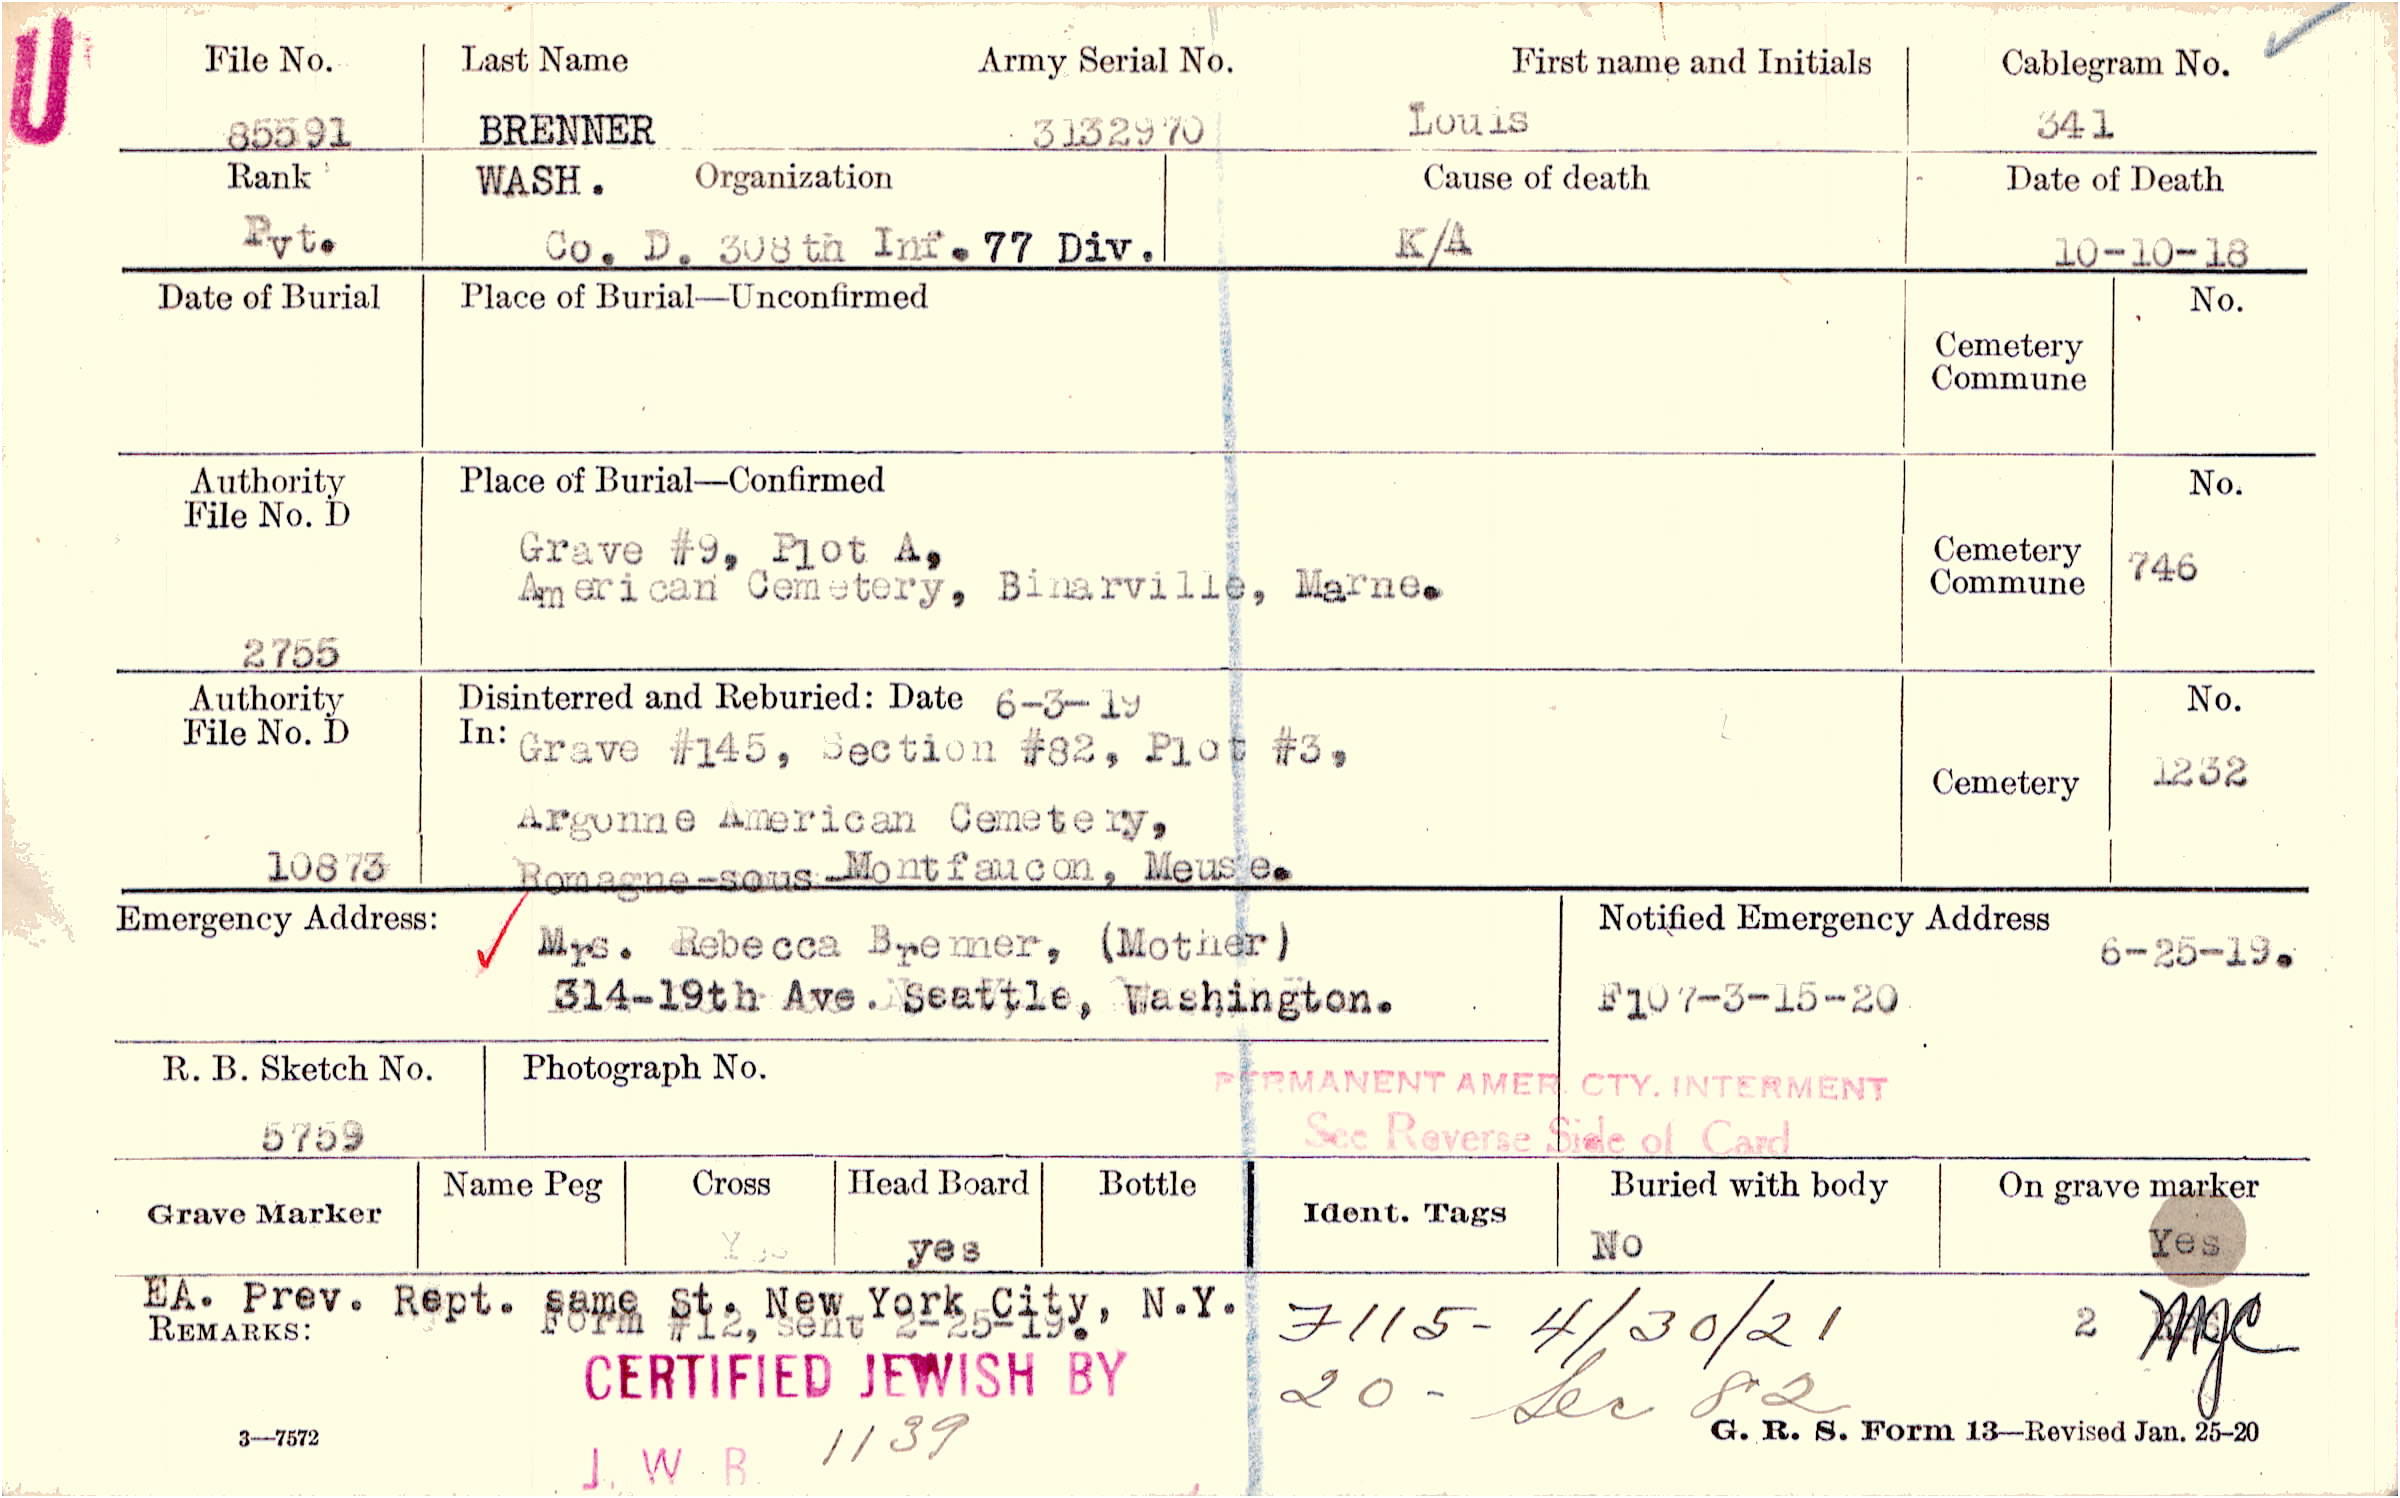 U
File No. Last Name Army Serial No. First name and Initials Cablegram No.
85591 BRENNER 3132970 Louis 341
Rank WASH. Organization Cause of death Date of Death
Pvt. Co. D. 308th Inf. 77 Div. K/A 10-10-18
Date of Burial Place of Burial—Unconfirmed No.
Cemetery
Commune
Authority Place of Burial—Confirmed No.
File No. D
Grave #9, Plot A,
American Cemetery, Binarville, Marne.
Cemetery
Commune 746
2755
Authority Disinterred and Reburied: Date 6-3-19 No.
File No. D In: Grave #145, Section #82, Plot #3,
Cemetery 1232
Argonne American Cemetery,
10873 Romagne-sous-Montfaucon, Meuse.
Emergency Address: Notified Emergency Address
Mrs. Rebecca Brenner, (Mother) 6-25-19.
314-19th Ave. Seattle, Washington. F107-3-15-20
R. B. Sketch No. Photograph No.
PERMANENT AMER. CTY. INTERMENT
5759 See Reverse Side of Card
Grave Marker Name Peg Cross Head Board Bottle Ident. Tags Buried with body On grave marker
Yes yes No Yes
EA. Prev. Rept. same St. New York City, N.Y.
REMARKS: Form #12, sent 2-25-19. 7115- 4/30/21 2 MJC
CERTIFIED JEWISH BY 20 - Sec 82
J. W. B. 1139
3—7572 G. R. S. Form 13—Revised Jan. 25-20